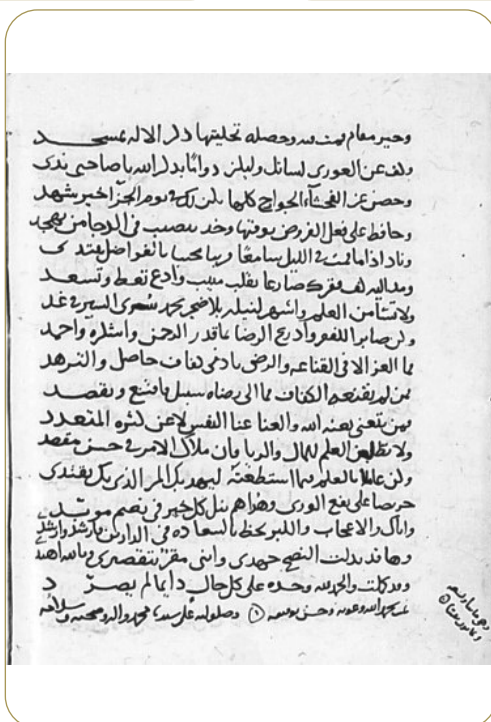 وخير مقام قمت فيه وحصلة تحليتها ذكر الاله بمسجد
وكف عن العورى لسانك وليكن دواما بذكر الله يا صاحبي ندى
وحصن عن الفحشاء الجوارح كلها تكن لك في يوم الجزا خير شهد
وحافظ على فعل الفروض بوقتها وخذ بنصيب في الدجا من تهجد
وناد اذا ما قمت في الليل سامعا قريبا مجيبا بالفواضل يبتدى
ومد اليه كف فقرك ضارعا بقلب منيب وادع تعط وتسعد
ولا تسأمن العلم واسهر لنيله بلا ضجر تحمد سرى السير في غد
وكن صابرا للفقر وادرع الرضا بما قدر الرحمن واشكره واحمد
فما العز الا في القناعة والرضى بادنى كفاف حاصل والتزهد
فمن لم يقنعه الكفاف فما الى رضاه سبيل فاقتنع وتقصد
فمن يتغنى يغنه الله والغنا غنا النفس لا عن كثرة المتعدد
ولا تطلبن العلم للمال والريا فان ملاك الامر في حسن مقصد
وكن عاملا بالعلم فيما استطعته ليهدى بك المرء الذي بك يقتدى
حريصا على نفع الورى وهداهم تنل كل خير في نعيم موبد
واياك والاعجاب والكبر تحظ بالسعادة في الدارين فارشد وارشد
وها قد بذلت النصح جهدى وانني مقر بتقصيرى وبالله اهتدى
وقد كملت والحمد لله وحده على كل حال دايما لم يصرد
تمت بحمد الله وعونه وحسن توفيقه وصلواته على سيدنا محمد واله وصحبه وسلامه